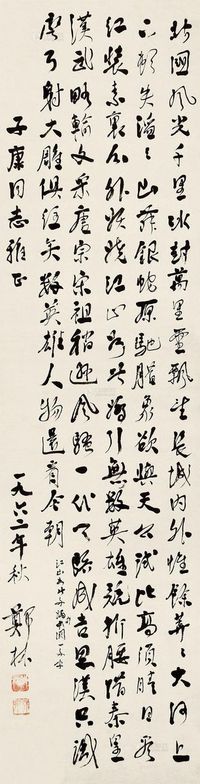 北國風光千里冰封萬里雪飄望長城内外惟餘莽々大河上
下頓失滔々山舞銀蛇原馳臘象欲與天公試比高須晴日看
紅裝素裏分外妖嬈江山如此嬌引無數英雄競折腰惜秦皇
漢武略輸文采唐宗宋祖稍遜風騷一代天驕成吉思漢只識
彎弓射大雕俱往矣數英雄人物還看今朝
子康同志雅正
一九六二年秋
鄭林